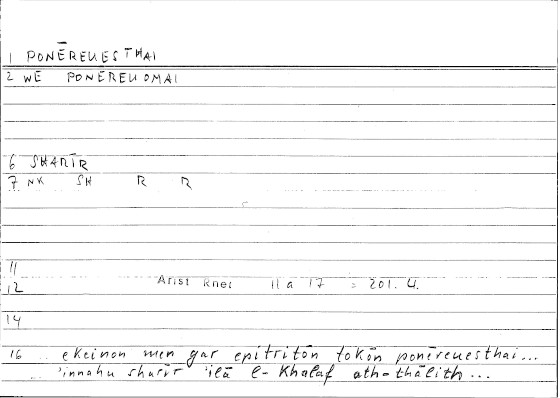 1 PONĒREUESTHAI
2 WE PONĒREUOMAI
6 SHARĪR
7 NK SH R R
11
12 Arist Rhet II a 17 = 201.4.
14
16 .. ekeinon men gar epitritōn tokōn ponēreuesthai...
'innahu sharīr 'ilā l-Khalaf ath-thālith...